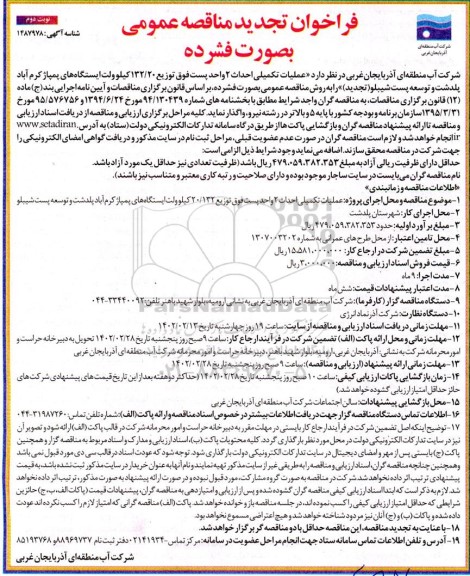 نوبت دوم
شناسه آگهی: ۱۴۸۷۹۷۸
فراخوان تجدید مناقصه عمومی
بصورت فشرده
شرکت آب منطقه‌ای
آذربایجان غربی
شرکت آب منطقه‌ای آذربایجان غربی در نظر دارد «عملیات تکمیلی احداث ۲ واحد پست فوق توزیع ۱۳۲/۲۰ کیلوولت ایستگاه‌های پمپاژ کرم آباد
پلدشت و توسعه پست شیبلو (تجدید)» را به روش مناقصه عمومی بصورت فشرده، بر اساس قانون برگزاری مناقصات و آیین نامه اجرایی بند (ج) ماده
(۱۲) قانون برگزاری مناقصات، به مناقصه گران واجد شرایط مطابق با بخشنامه های شماره ۹۴/۱۳۰۴۳۹ مورخ ۱۳۹۴/۶/۲۴ و ۹۵/۵۷۶۷۵۶ مورخ
۱۳۹۵/۳/۳۱ سازمان برنامه و بودجه کشور با پایه ۵ و بالاتر در رشته نیرو، واگذار نماید. کلیه مراحل برگزاری ارزیابی و مناقصه از دریافت اسناد ارزیابی
و مناقصه تا ارائه پیشنهاد مناقصه گران و بازگشایی پاکت ها از طریق درگاه سامانه تدارکات الکترونیکی دولت (ستاد) به آدرس www.setadiran.
ir انجام خواهد شد و لازم است مناقصه گران در صورت عدم عضویت قبلی، مراحل ثبت نام در سایت مذکور و دریافت گواهی امضای الکترونیکی را
جهت شرکت در مناقصه محقق سازند. اضافه می نماید وجود شرایط ذیل الزامی است:
حداقل دارای ظرفیت ریالی آزاد به مبلغ ۴۷۹،۰۵۹،۳۸۲،۳۵۳ ریال باشد (ظرفیت تعدادی نیز حداقل یک مورد آزاد باشد.
نام مناقصه گران می بایست در سایت ساجار موجود بوده و دارای صلاحیت و رتبه کاری معتبر و متناسب نیز باشند)
«اطلاعات مناقصه و زمانبندی»
۱- موضوع مناقصه و محل اجرای پروژه: عملیات تکمیلی احداث ۲ واحد پست فوق توزیع ۲۰/۱۳۲ کیلوولت ایستگاه‌های پمپاژ کرم آباد پلدشت و توسعه پست شیبلو
۲- محل اجرای کار: شهرستان پلدشت
۳- مبلغ برآورد اولیه: حدود ۴۷۹،۰۵۹،۳۸۲،۳۵۳ ریال
۴- محل تامین اعتبار: از محل طرح های عمرانی به شماره ۱۳۰۷۰۰۳۲۰۲
۵- مبلغ تضمین شرکت در ارجاع کار: ۱۵،۵۸۱،۰۰۰،۰۰۰ ریال
۶- قیمت فروش اسناد ارزیابی و مناقصه: ۳،۰۰۰،۰۰۰ ریال
۷- مدت اجرا: ۹ ماه
۸- مدت اعتبار پیشنهادات قیمت: شش ماه
۹- دستگاه مناقصه گزار (کارفرما): شرکت آب منطقه‌ای آذربایجان غربی به نشانی ارومیه، بلوار شهید باهنر تلفن: ۳۳۴۴۰۰۹۲-۰۴۴
۱۰- دستگاه نظارت: شرکت آذر نماد انرژی
۱۱- مهلت زمانی دریافت اسناد ارزیابی و مناقصه از سایت: ساعت ۱۹ روز چهارشنبه تاریخ ۱۴۰۲/۰۲/۱۳
۱۲- مهلت زمانی و محل ارائه پاکت (الف) تضمین شرکت در فرآیند ارجاع کار: ساعت ۹ صبح روز پنجشنبه تاریخ ۱۴۰۲/۰۲/۲۸ تحویل به دبیرخانه حراست و
امور محرمانه شرکت به نشانی: آذربایجان غربی، ارومیه، بلوار شهید باهنر، دبیرخانه حراست و امور محرمانه شرکت آب منطقه‌ای آذربایجان غربی
۱۳- مهلت زمانی ارائه پیشنهاد (ارزیابی و مناقصه): ساعت ۹ صبح روز پنجشنبه تاریخ ۱۴۰۲/۰۲/۲۸
۱۴- زمان بازگشایی پاکات ارزیابی کیفی: ساعت ۱۰ صبح روز پنجشنبه تاریخ ۱۴۰۲/۰۲/۲۸ (حداکثر دو هفته بعد از این تاریخ قیمت های پیشنهادی شرکت های
حائز حداقل امتیاز ارزیابی گشوده خواهد شد.)
۱۵- محل بازگشایی پیشنهادات: سالن اجتماعات شرکت آب منطقه‌ای آذربایجان غربی
۱۶- اطلاعات تماس دستگاه مناقصه گزار جهت دریافت اطلاعات بیشتر در خصوص اسناد مناقصه و ارائه پاکت (الف): شماره تلفن تماس: ۳۱۹۸۷۲۶۰-۰۴۴
۱۷- توضیح اینکه اصل تضمین شرکت در فرآیند ارجاع کار بایستی در مهلت مقرر به دبیرخانه حراست و امور محرمانه شرکت در قالب پاکت (الف) ارائه شود و تصویر آن
نیز در سایت تدارکات الکترونیکی دولت در محل مورد نظر بارگذاری گردد. کلیه محتویات پاکت (ب)، اسناد ارزیابی و مدارک و اسناد مربوط به مناقصه گزار و همچنین
پاکت (ج) بایستی پس از مهر و امضای دیجیتال در سایت تدارکات الکترونیکی دولت بارگذاری شود.
۱۸- با عنایت به تجدید مناقصه، این مناقصه حداقل با دو مناقصه گر برگزار خواهد شد.
۱۹- آدرس و تلفن اطلاعات تماس سامانه ستاد جهت انجام مراحل عضویت در سامانه: مرکز تماس: ۰۲۱۴۱۹۳۴ دفتر ثبت نام: ۸۸۹۶۹۷۳۷ و ۸۵۱۹۳۷۶۸
شرکت آب منطقه‌ای آذربایجان غربی